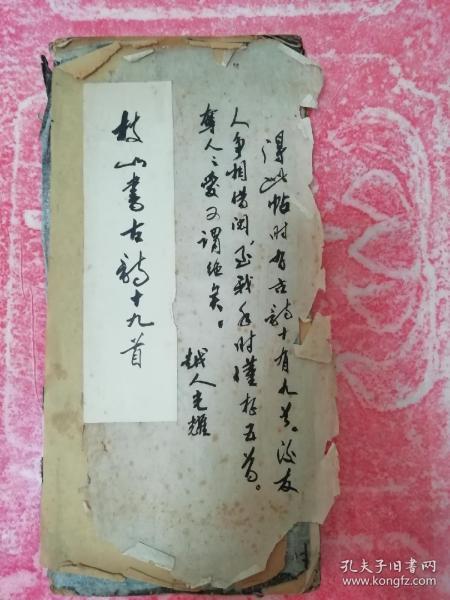 得此帖时有古诗十有九首。后友
人争相借阅至我手时仅存五首。
夺人之爱可谓绝矣。
越人光耀
枝山書古詩十九首
孔夫子旧书网
www.kongfz.com